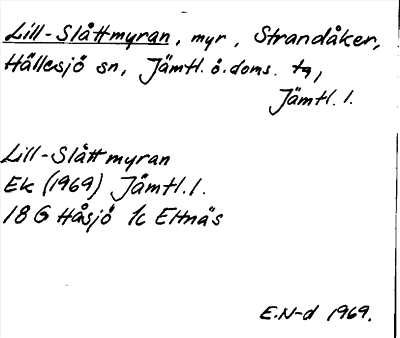 Lill-Slåttmyran, myr, Strandåker,
Hällesjö sn, Jämtl. ö. doms. tg,
Jämtl. l.
Lill-Slåttmyran
Ek (1969) Jämtl. l.
18 G Håsjö 1c Eltnäs
E.N-d 1969.